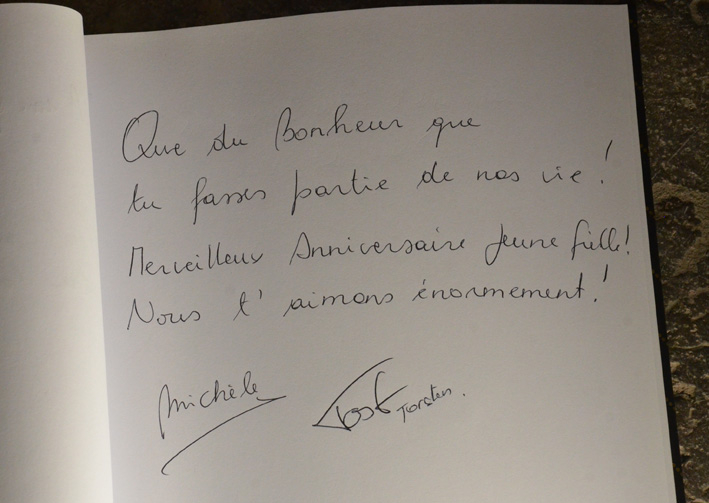 Que du Bonheur que
tu fasses partie de nos vie !
Merveilleux Anniversaire Jeune fille !
Nous t' aimons énormement !
Michèle
Torsten.